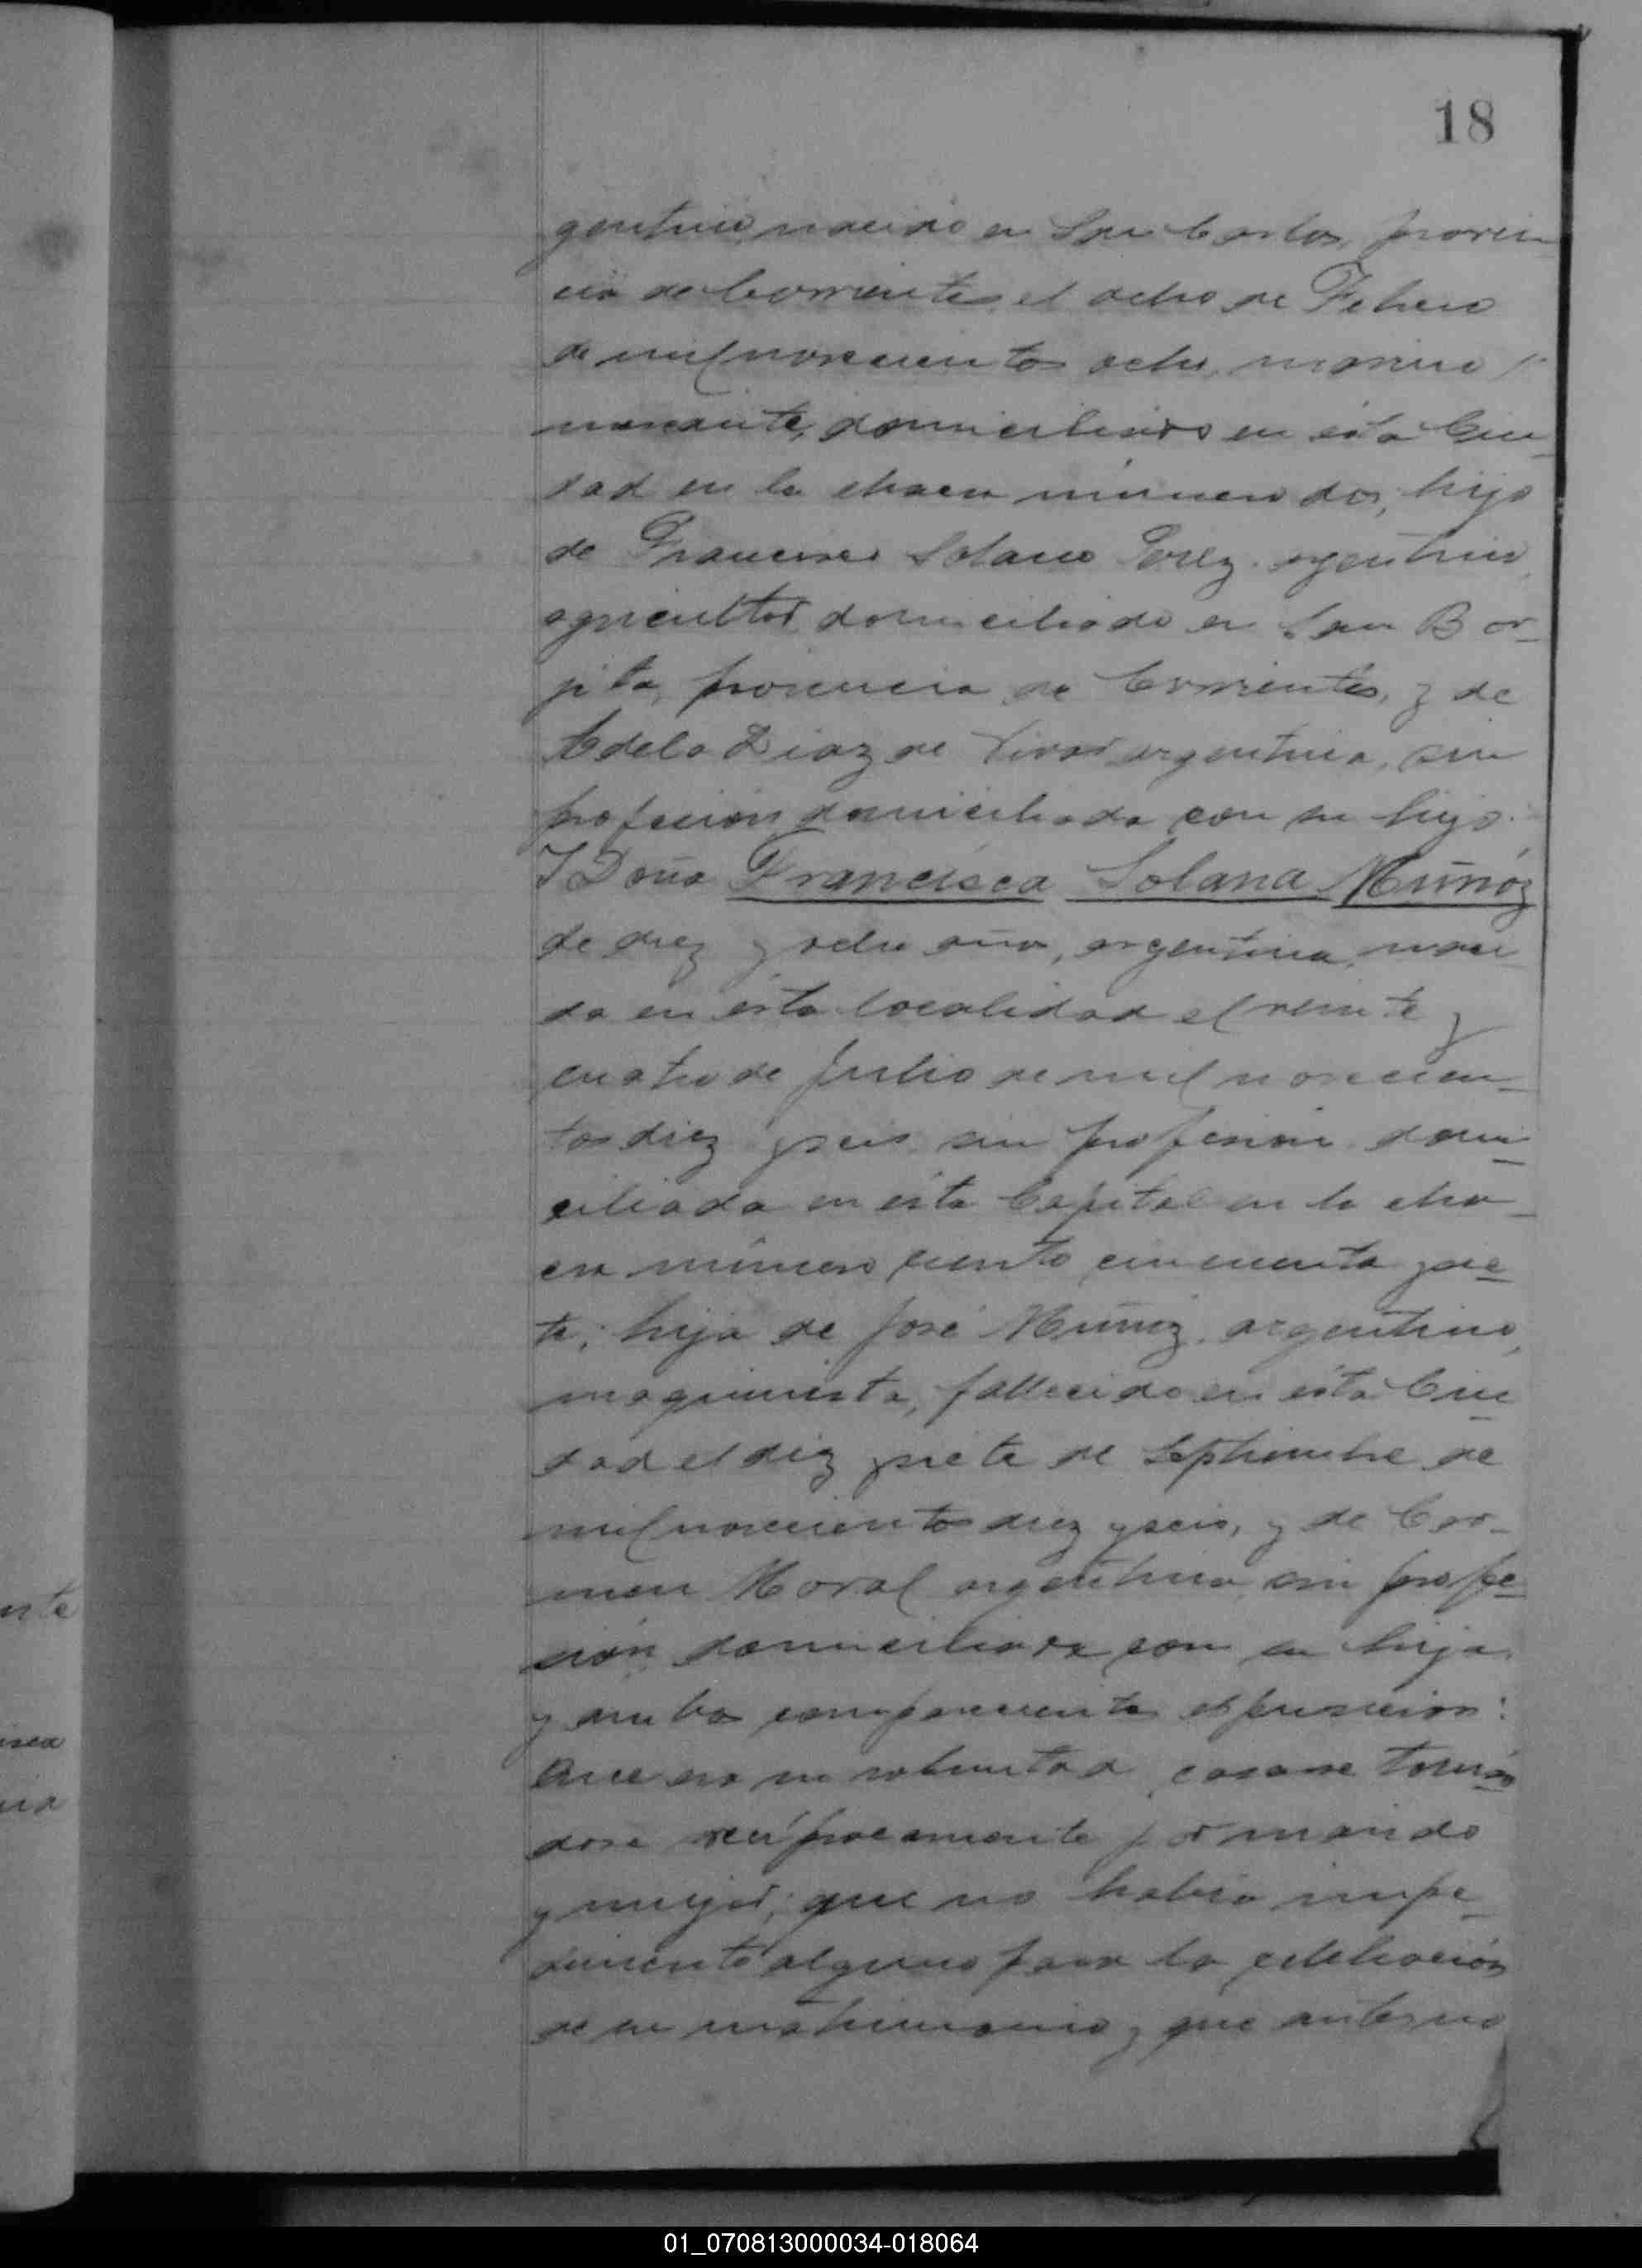 18
gentino, nacido en San Carlos, provin-
cia de Corrientes, el ocho de Febrero
de mil novecientos ocho, marino
mercante, domiciliado en esta Ciu-
dad en la chacra número dos; hijo
de Francisco Solano Perez, argentino,
agricultor, domiciliado en San Bor-
jita, provincia de Corrientes, y de
Adela Diaz de argentina, sin
profesión, domiciliada con su hijo.
Y Doña Francisca Solana Muñóz
de diez y ocho años, argentina, naci-
da en esta localidad el veinte y
cuatro de Julio de mil novecien-
tos diez y seis, sin profesión, domi-
ciliada en esta Capital en la cha-
cra número ciento cincuenta y sie-
te; hija de José Muñoz, argentino,
maquinista, fallecido en esta Ciu-
dad el diez y siete de Septiembre de
mil novecientos diez y seis, y de Car-
men Moral, argentina, sin profe-
sión, domiciliada con su hija,
y ambos comparecientes expusieron:
Que era su voluntad casarse tomán-
dose recíprocamente por marido
y mujer; que no había impe-
dimento alguno para la celebración
de su matrimonio y que
nte
01_070813000034-018064